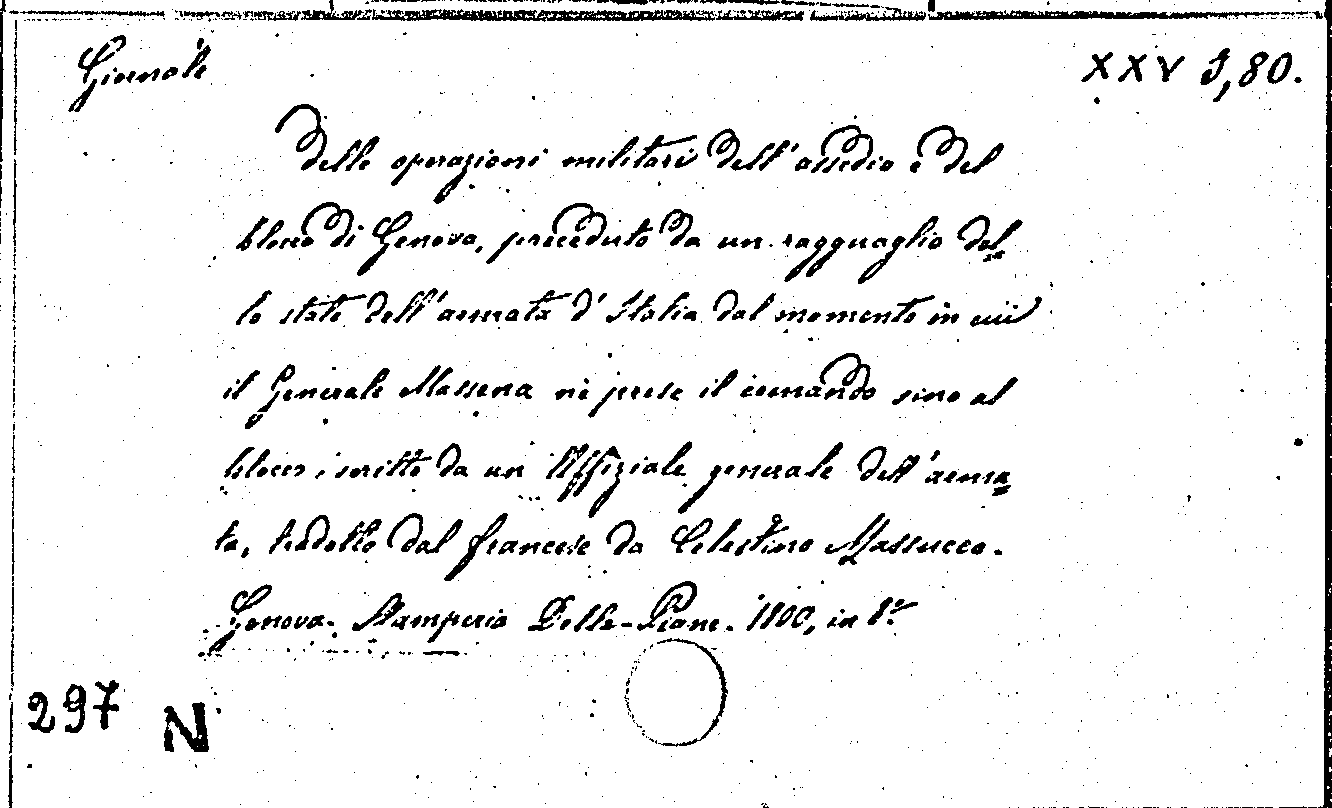 Giornale
XXV I, 80.
delle operazioni militari dell'assedio e del
blocco di Genova, preceduto da un ragguaglio del=
lo stato dell'armata d'Italia dal momento in cui
il Generale Massena ne prese il comando sino al
blocco, scritto da un Uffiziale generale dell'arma=
ta, tradotto dal francese da Celestino Massucco.
Genova. Stamperia Delle-Piane. 1800, in 8.º
297 N